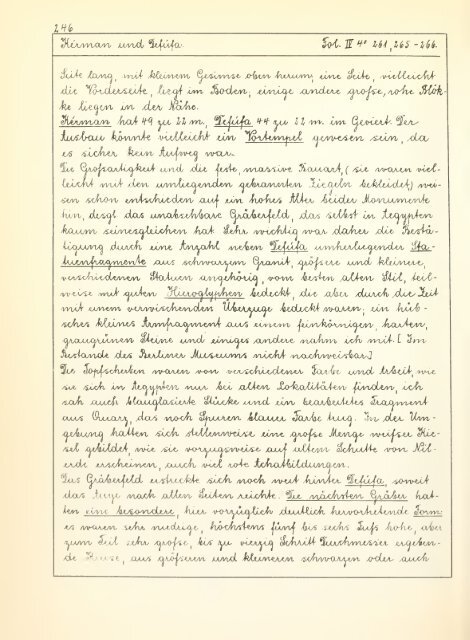 246
Kerman und Defûfa. Fol. II 4° 261, 265-266.
Seite lang, mit kleinem Gesimse oben herum, eine Seite, vielleicht
die Vorderseite, liegt im Boden, einige andere große, rohe Blök-
ke liegen in der Nähe.
Kerman hat 49 zu 22 m., Defûfa 44 zu 22 m. im Geviert. Der
Ausbau könnte vielleicht ein Vortempel gewesen sein, da
es sicher kein Aufweg war.
Die Großartigkeit und die feste, massive Bauart, (sie waren viel-
leicht mit den umliegenden gebrannten Ziegeln bekleidet) wei-
sen schon entschieden auf ein hohes Alter beider Monumente
hin, desgl. das unabsehbare Gräberfeld, das selbst in Aegypten
kaum seinesgleichen hat. Sehr wichtig war daher die Bestä-
tigung durch eine Anzahl neben Defûfa umherliegender Sta-
tuenfragmente aus schwarzem Granit, größere und kleinere,
verschiedenen Statuen angehörig, vom besten alten Stil, teil-
weise mit guten Hieroglyphen bedeckt, die aber durch die Zeit
mit einem verwischenden Überzuge bedeckt waren, ein hüb-
sches kleines Armfragment aus einem feinkörnigen, harten,
graugrünen Steine und einiges andere nahm ich mit. [Im
Bestande des Berliner Museums nicht nachweisbar.]
Die Topfscherben waren von verschiedener Farbe und Arbeit, wie
sie sich in Aegypten nur bei alten Lokalitäten finden, ich
sah auch blauglasierte Stücke und ein bearbeitetes Fragment
aus Quarz, das noch Spuren blauer Farbe trug. In der Um-
gebung hatten sich stellenweise eine große Menge weißer Kie-
sel gebildet, wie sie vorzugsweise auf altem Schutte von Nil-
erde erscheinen, auch viel rote Achatbildungen.
Das Gräberfeld erstreckt sich noch weit hinter Defûfa, soweit
das Auge nach allen Seiten reichte. Die nächsten Gräber hat-
ten eine besondere, hier vorzüglich deutlich hervortretende Form:
es waren sehr niedrige, höchstens fünf bis sechs Fuß hohe, aber
zum Teil sehr große, bis zu vierzig Schritt Durchmesser ergeben-
de Kreise, aus größeren und kleineren schwarzen oder auch